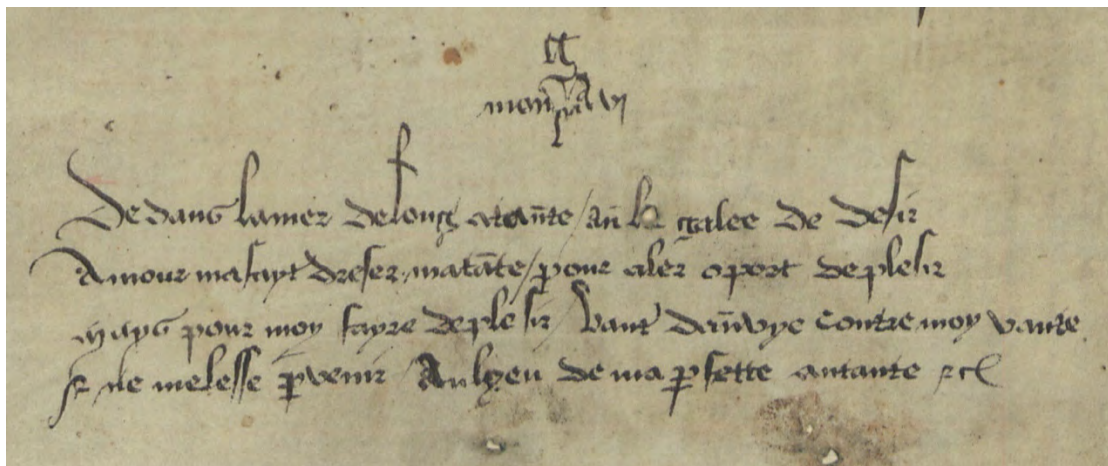 De dans lamer de long atañte / añ la galee de desir
Amour ma fayt dreser matãte / pour aler o port de plesir
Mays pour moy fayre deplesir / vant dañvye contre moy vante
ne me lesse pvenir / An lyeu de ma pfette antante